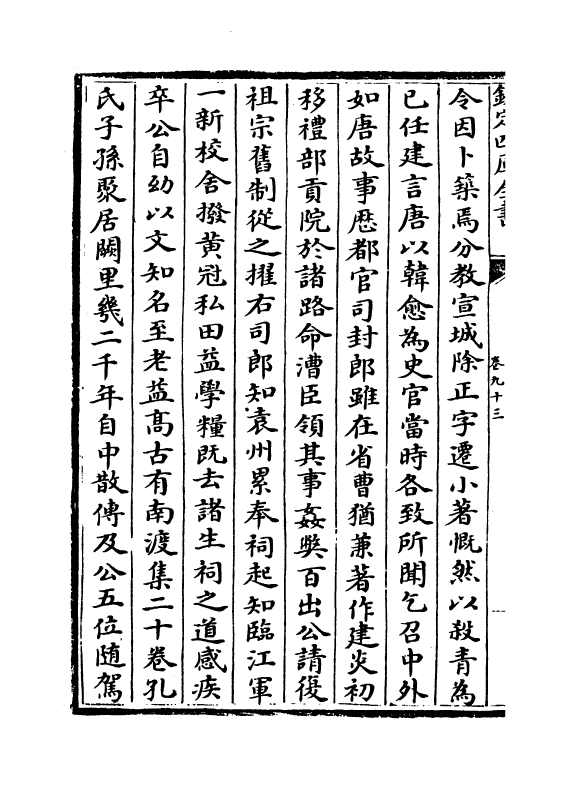 欽定四庫全書
卷九十三
令因卜築焉分教宣城除正字遷小著慨然以殺青為
已任建言唐以韓愈為史官當時各致所聞乞召中外
如唐故事歴都官司封郎雖在省曹猶兼著作建炎初
移禮部貢院於諸路命漕臣領其事姦獘百出公請復
祖宗舊制從之擢右司郎知袁州累奉祠起知臨江軍
一新校舍撥黄冠私田益學糧既去諸生祠之道感疾
卒公自幼以文知名至老益髙古有南渡集二十卷孔
氏子孫聚居闕里幾二千年自中散傳及公五位随駕